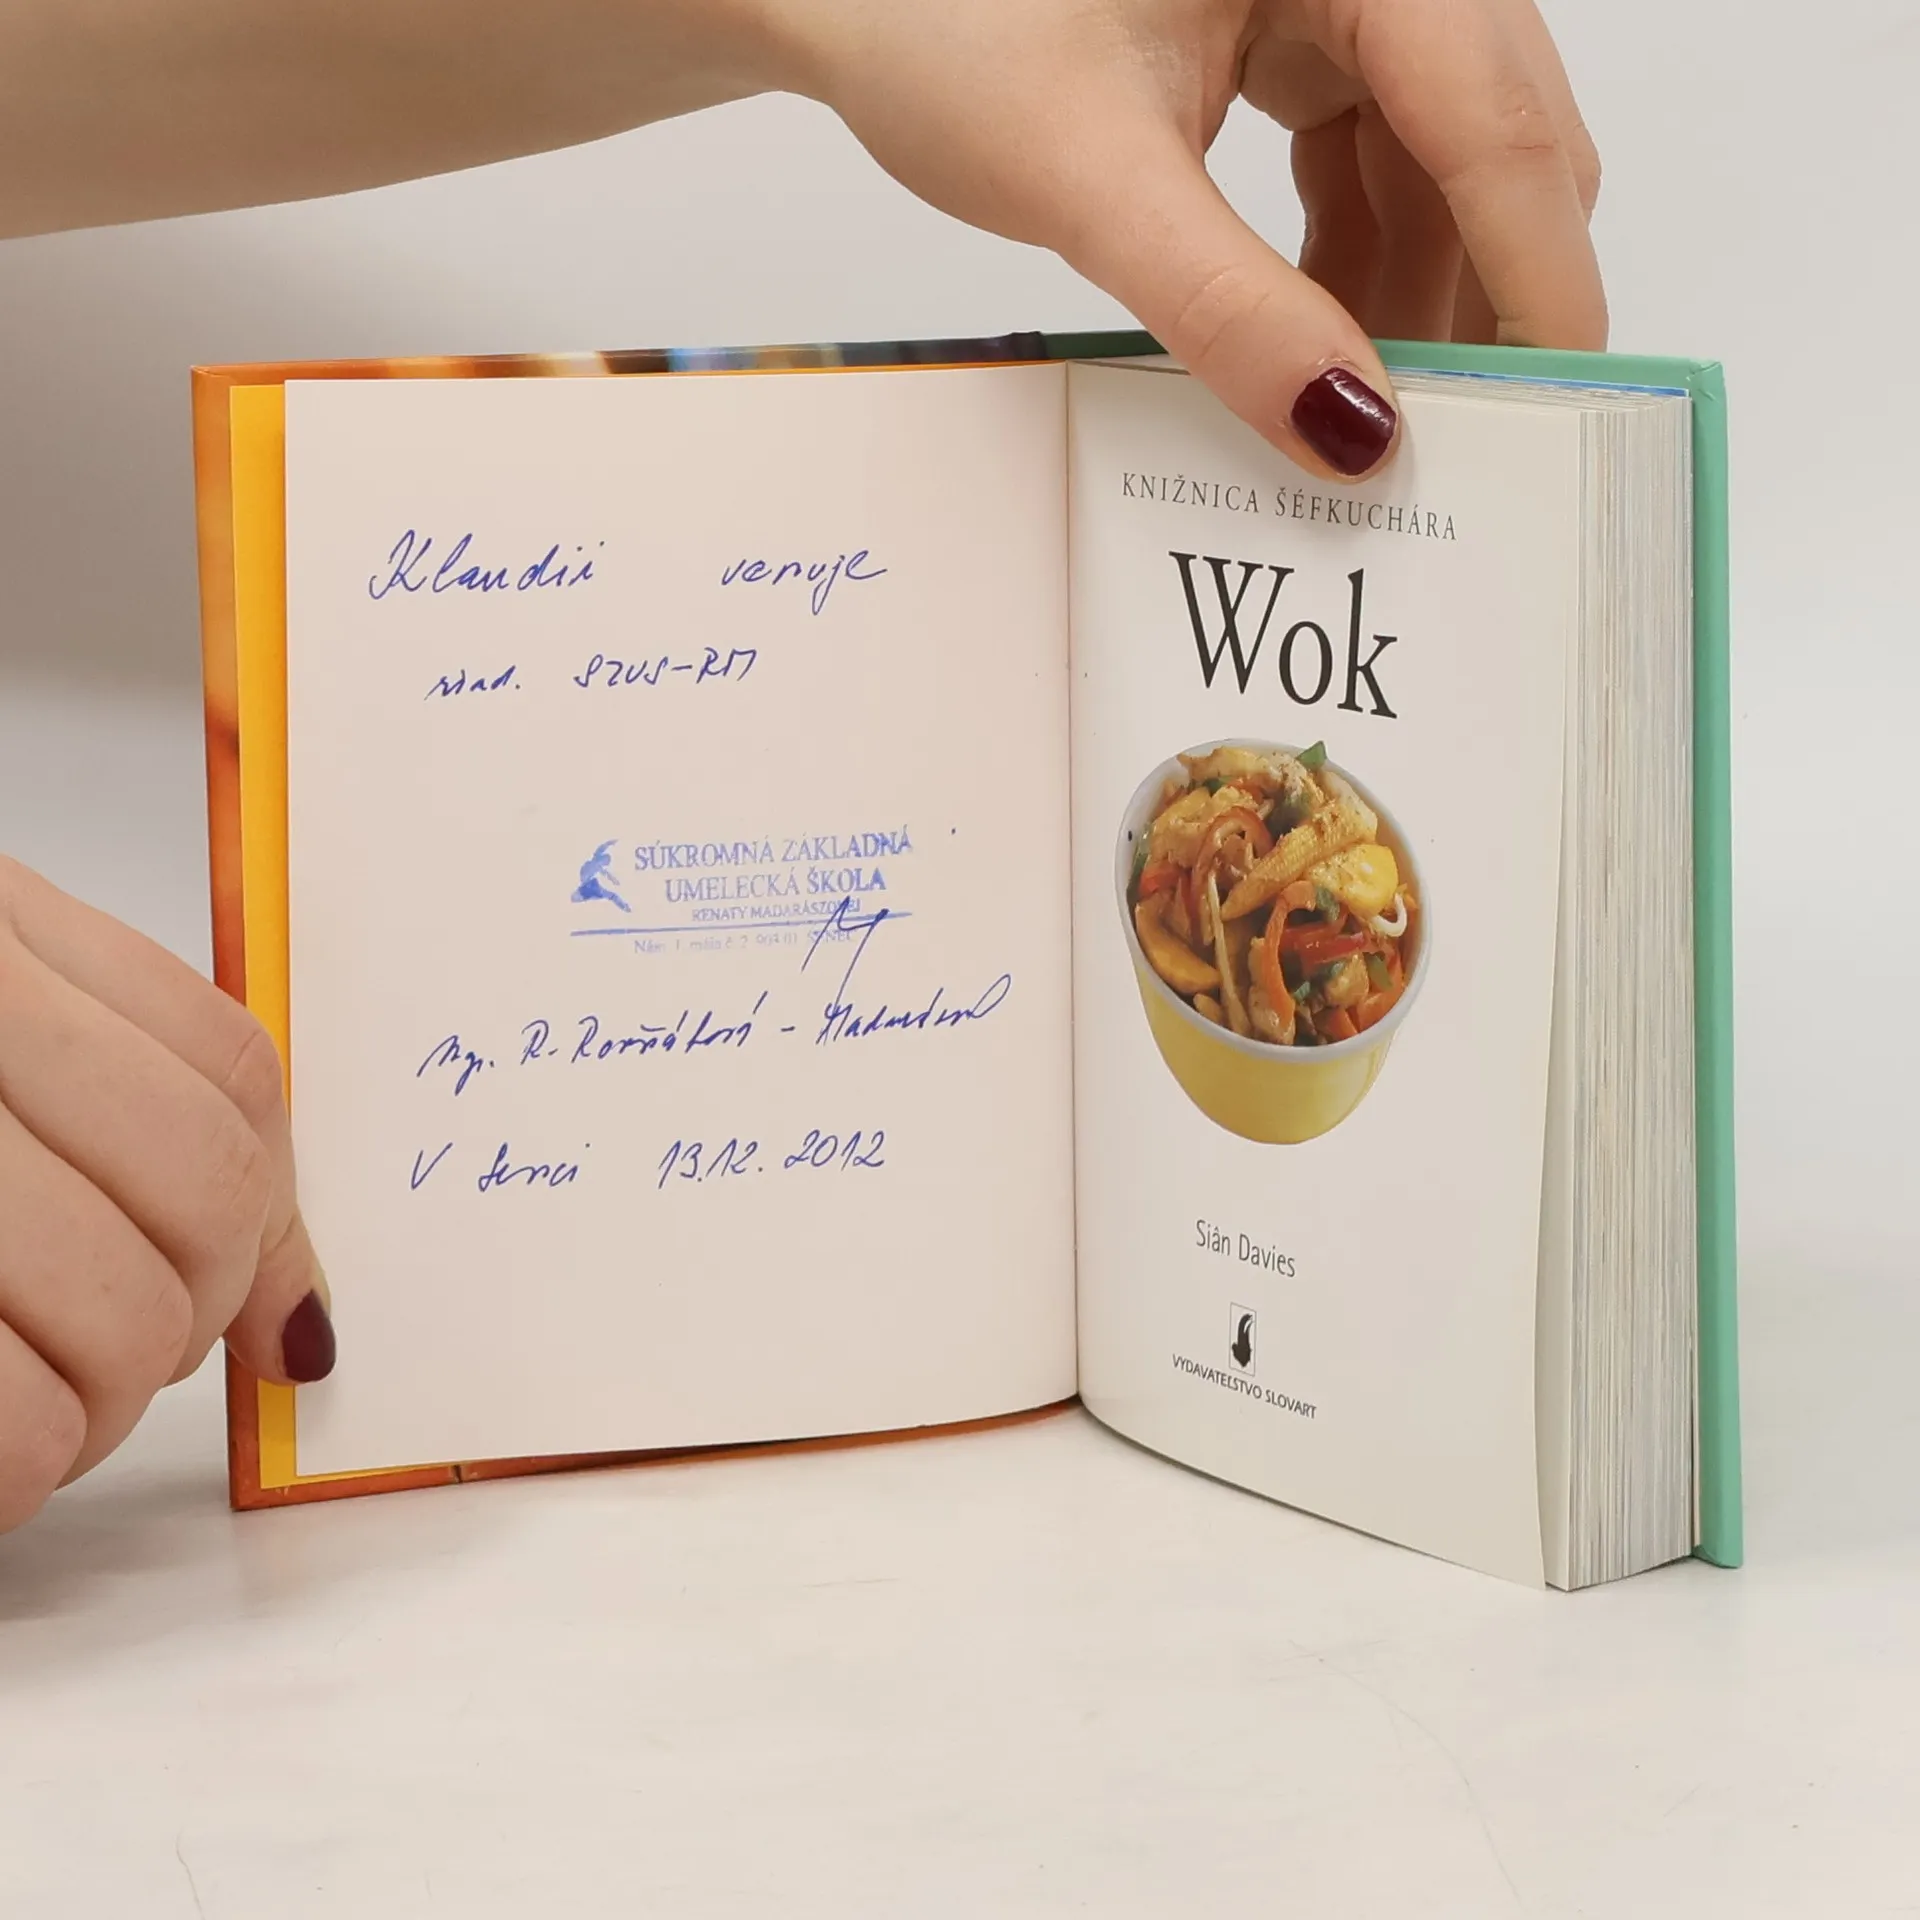 Klaudii venuje
riad. SZUŠ-RM
SÚKROMNÁ ZÁKLADNÁ
UMELECKÁ ŠKOLA
RENATY MADARÁSZOVEJ
Nám. 1. mája č. 2, 903 01 SENEC
Mgr. R. - Madarászová
V Senci 13.12.2012
KNIŽNICA ŠÉFKUCHÁRA
Wok
Siân Davies
VYDAVATEĽSTVO SLOVART